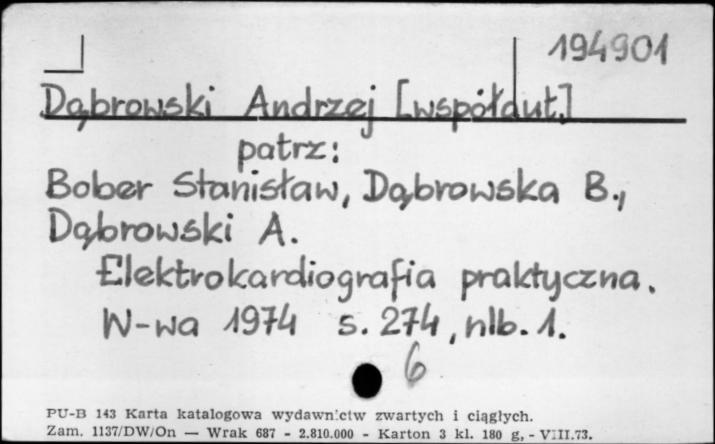 194901
Dąbrowski Andrzej [współaut.]
patrz:
Bober Stanisław, Dąbrowska B.,
Dąbrowski A.
Elektrokardiografia praktyczna.
W-wa 1974 s. 274, nlb. 1.
6
PU-B 143 Karta katalogowa wydawnictw zwartych i ciągłych.
Zam. 1137/DW/On — Wrak 687 - 2.810.000 - Karton 3 kl. 180 g, - VIII.73.